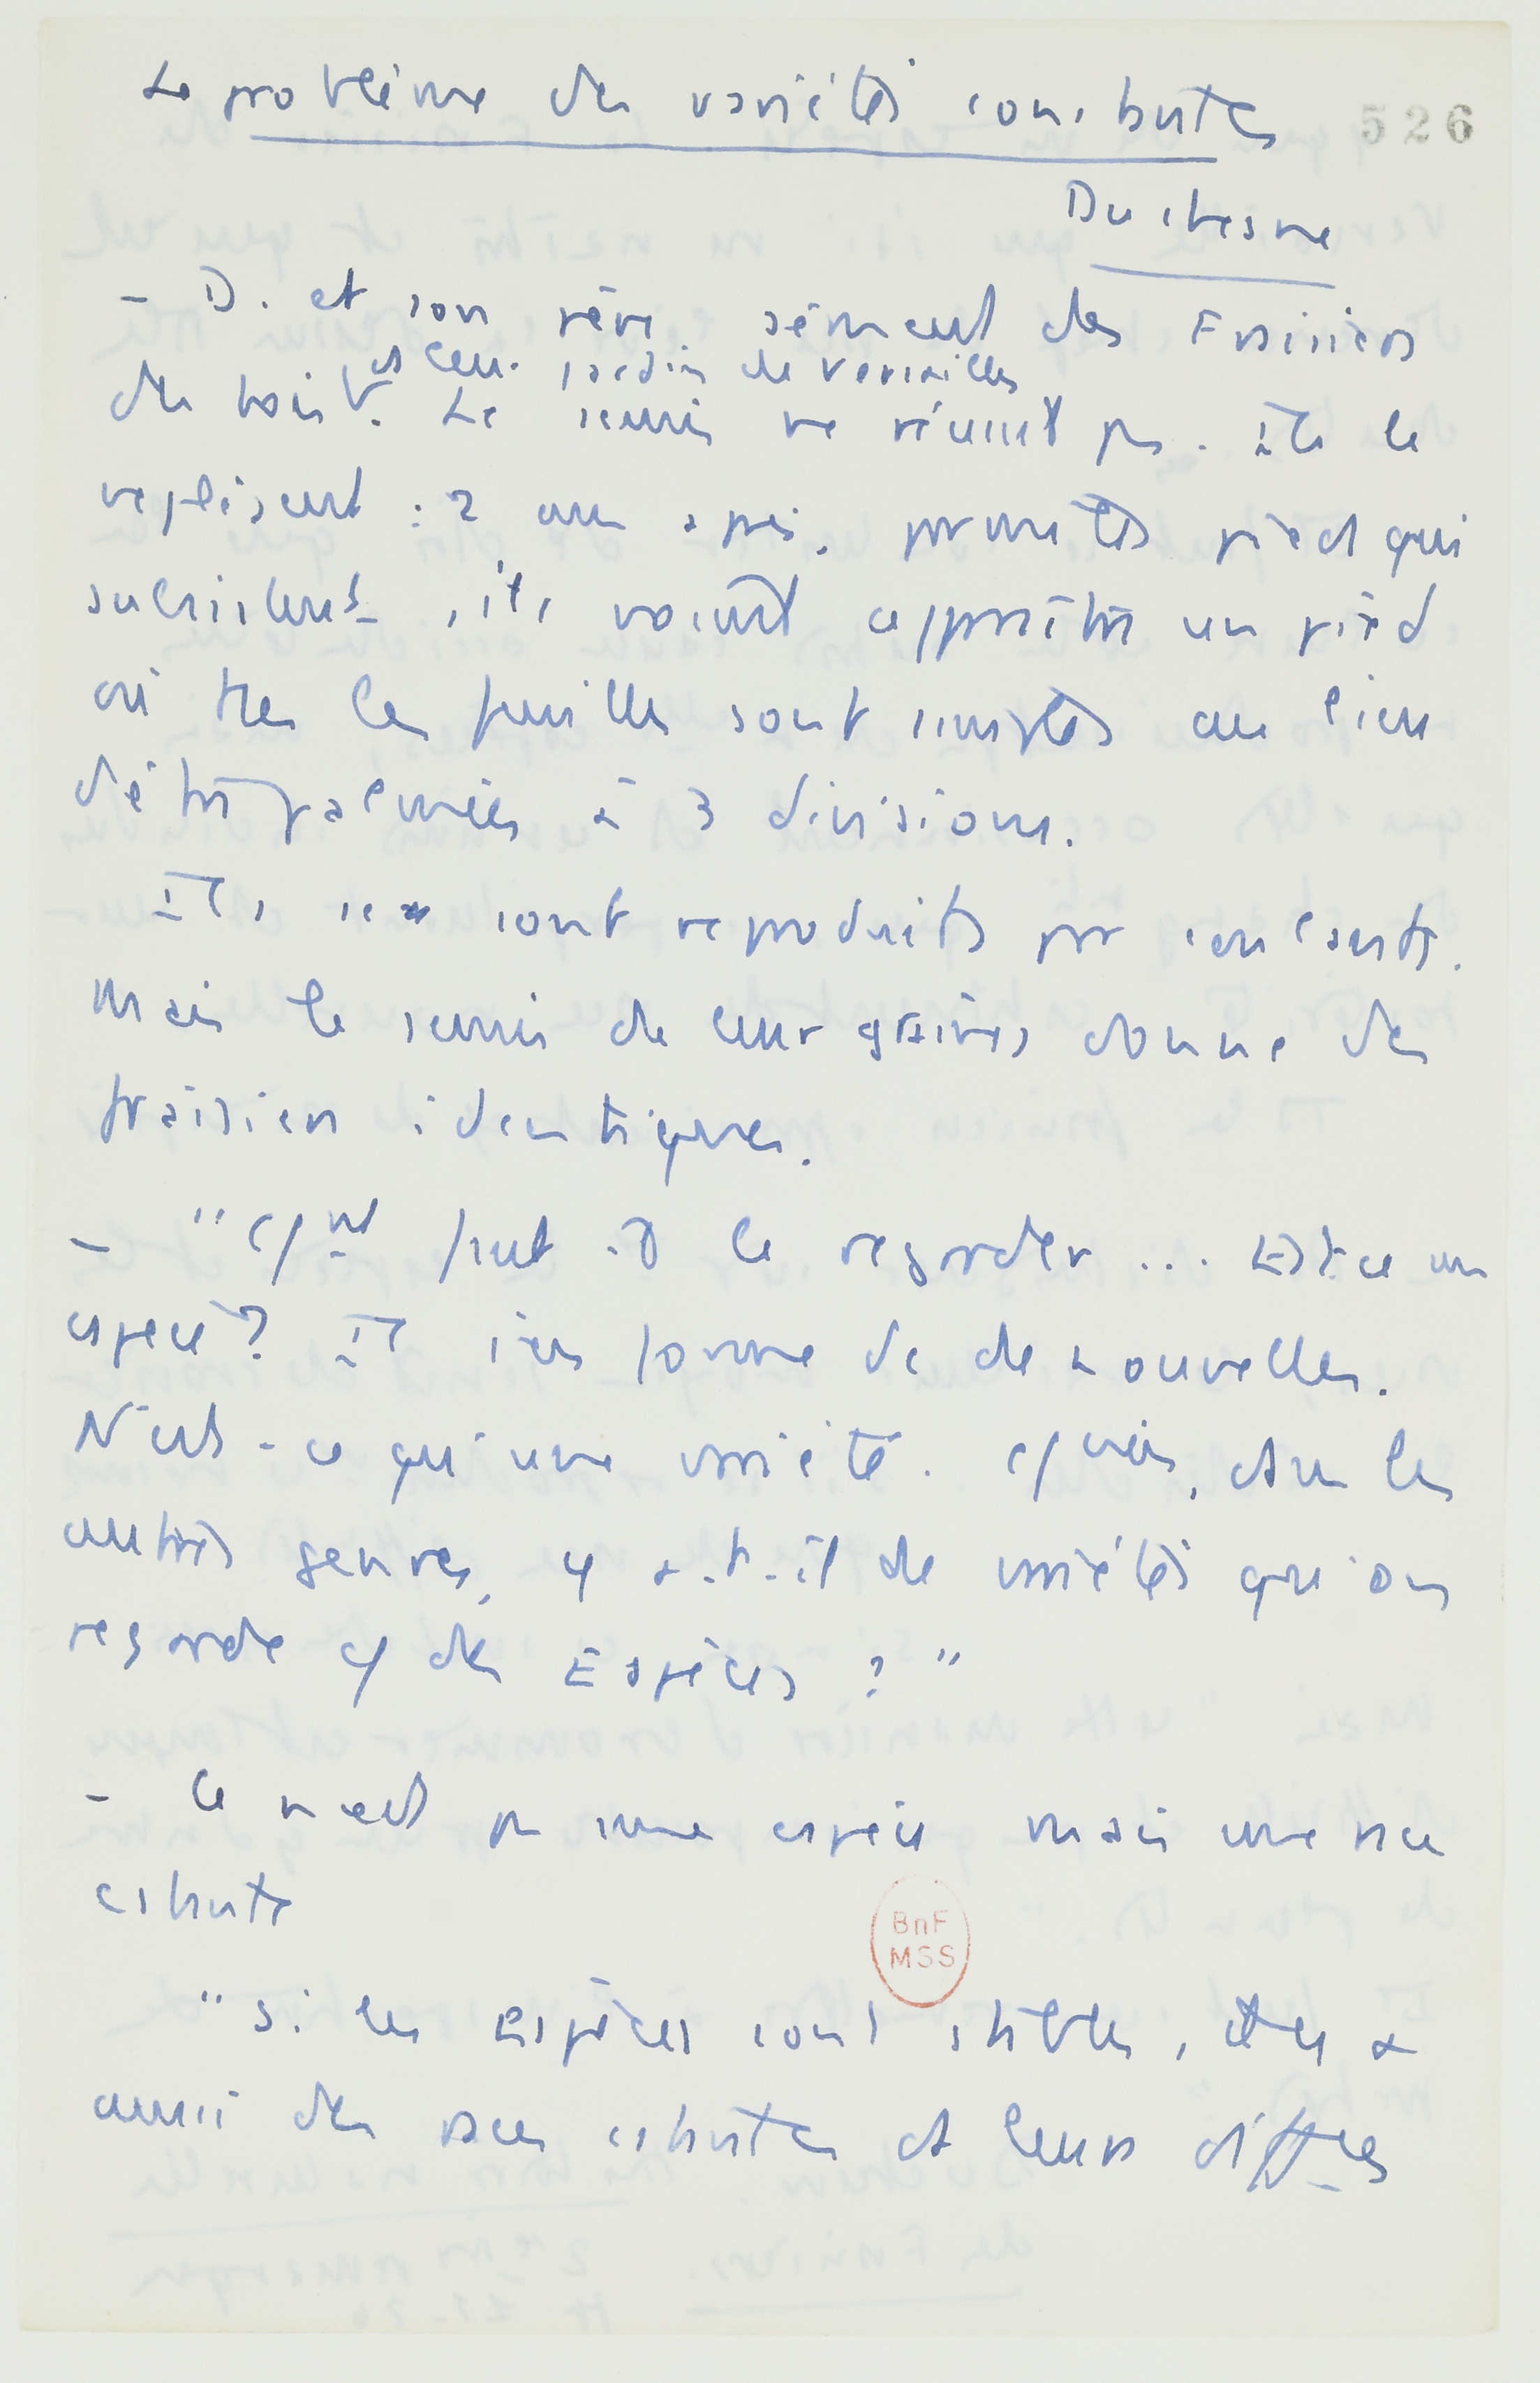 Le problème des variétés constantes
526
Duchesne
- D. et son père sèment des Fraisiers
ds leur jardin de Versailles
des bois. Le semis ne réussit pas. Ils le
replacent : 2 ans après, parmi les pieds qui
subsistent, ils voient apparaître un pied
où ttes les feuilles sont simples au lieu
d'être palmées à 3 divisions.
Ils se sont reproduits par coulants.
Mais le semis de leur graines donne des
fraisiers identiques.
- "Cj nt faut-il le regarder... Est-ce une
espèce? Il s'en forme dc de nouvelles.
N'est-ce qu'une variété. Cj bien, ds les
autres genres, y a-t-il de variétés qu'on
regarde cj des Espèces ? "
- Ce n'est pas une espèce mais une race
cstante
BnF
MSS
"Si les Espèces sont stables, il y a
aussi des races cstantes et leurs différces